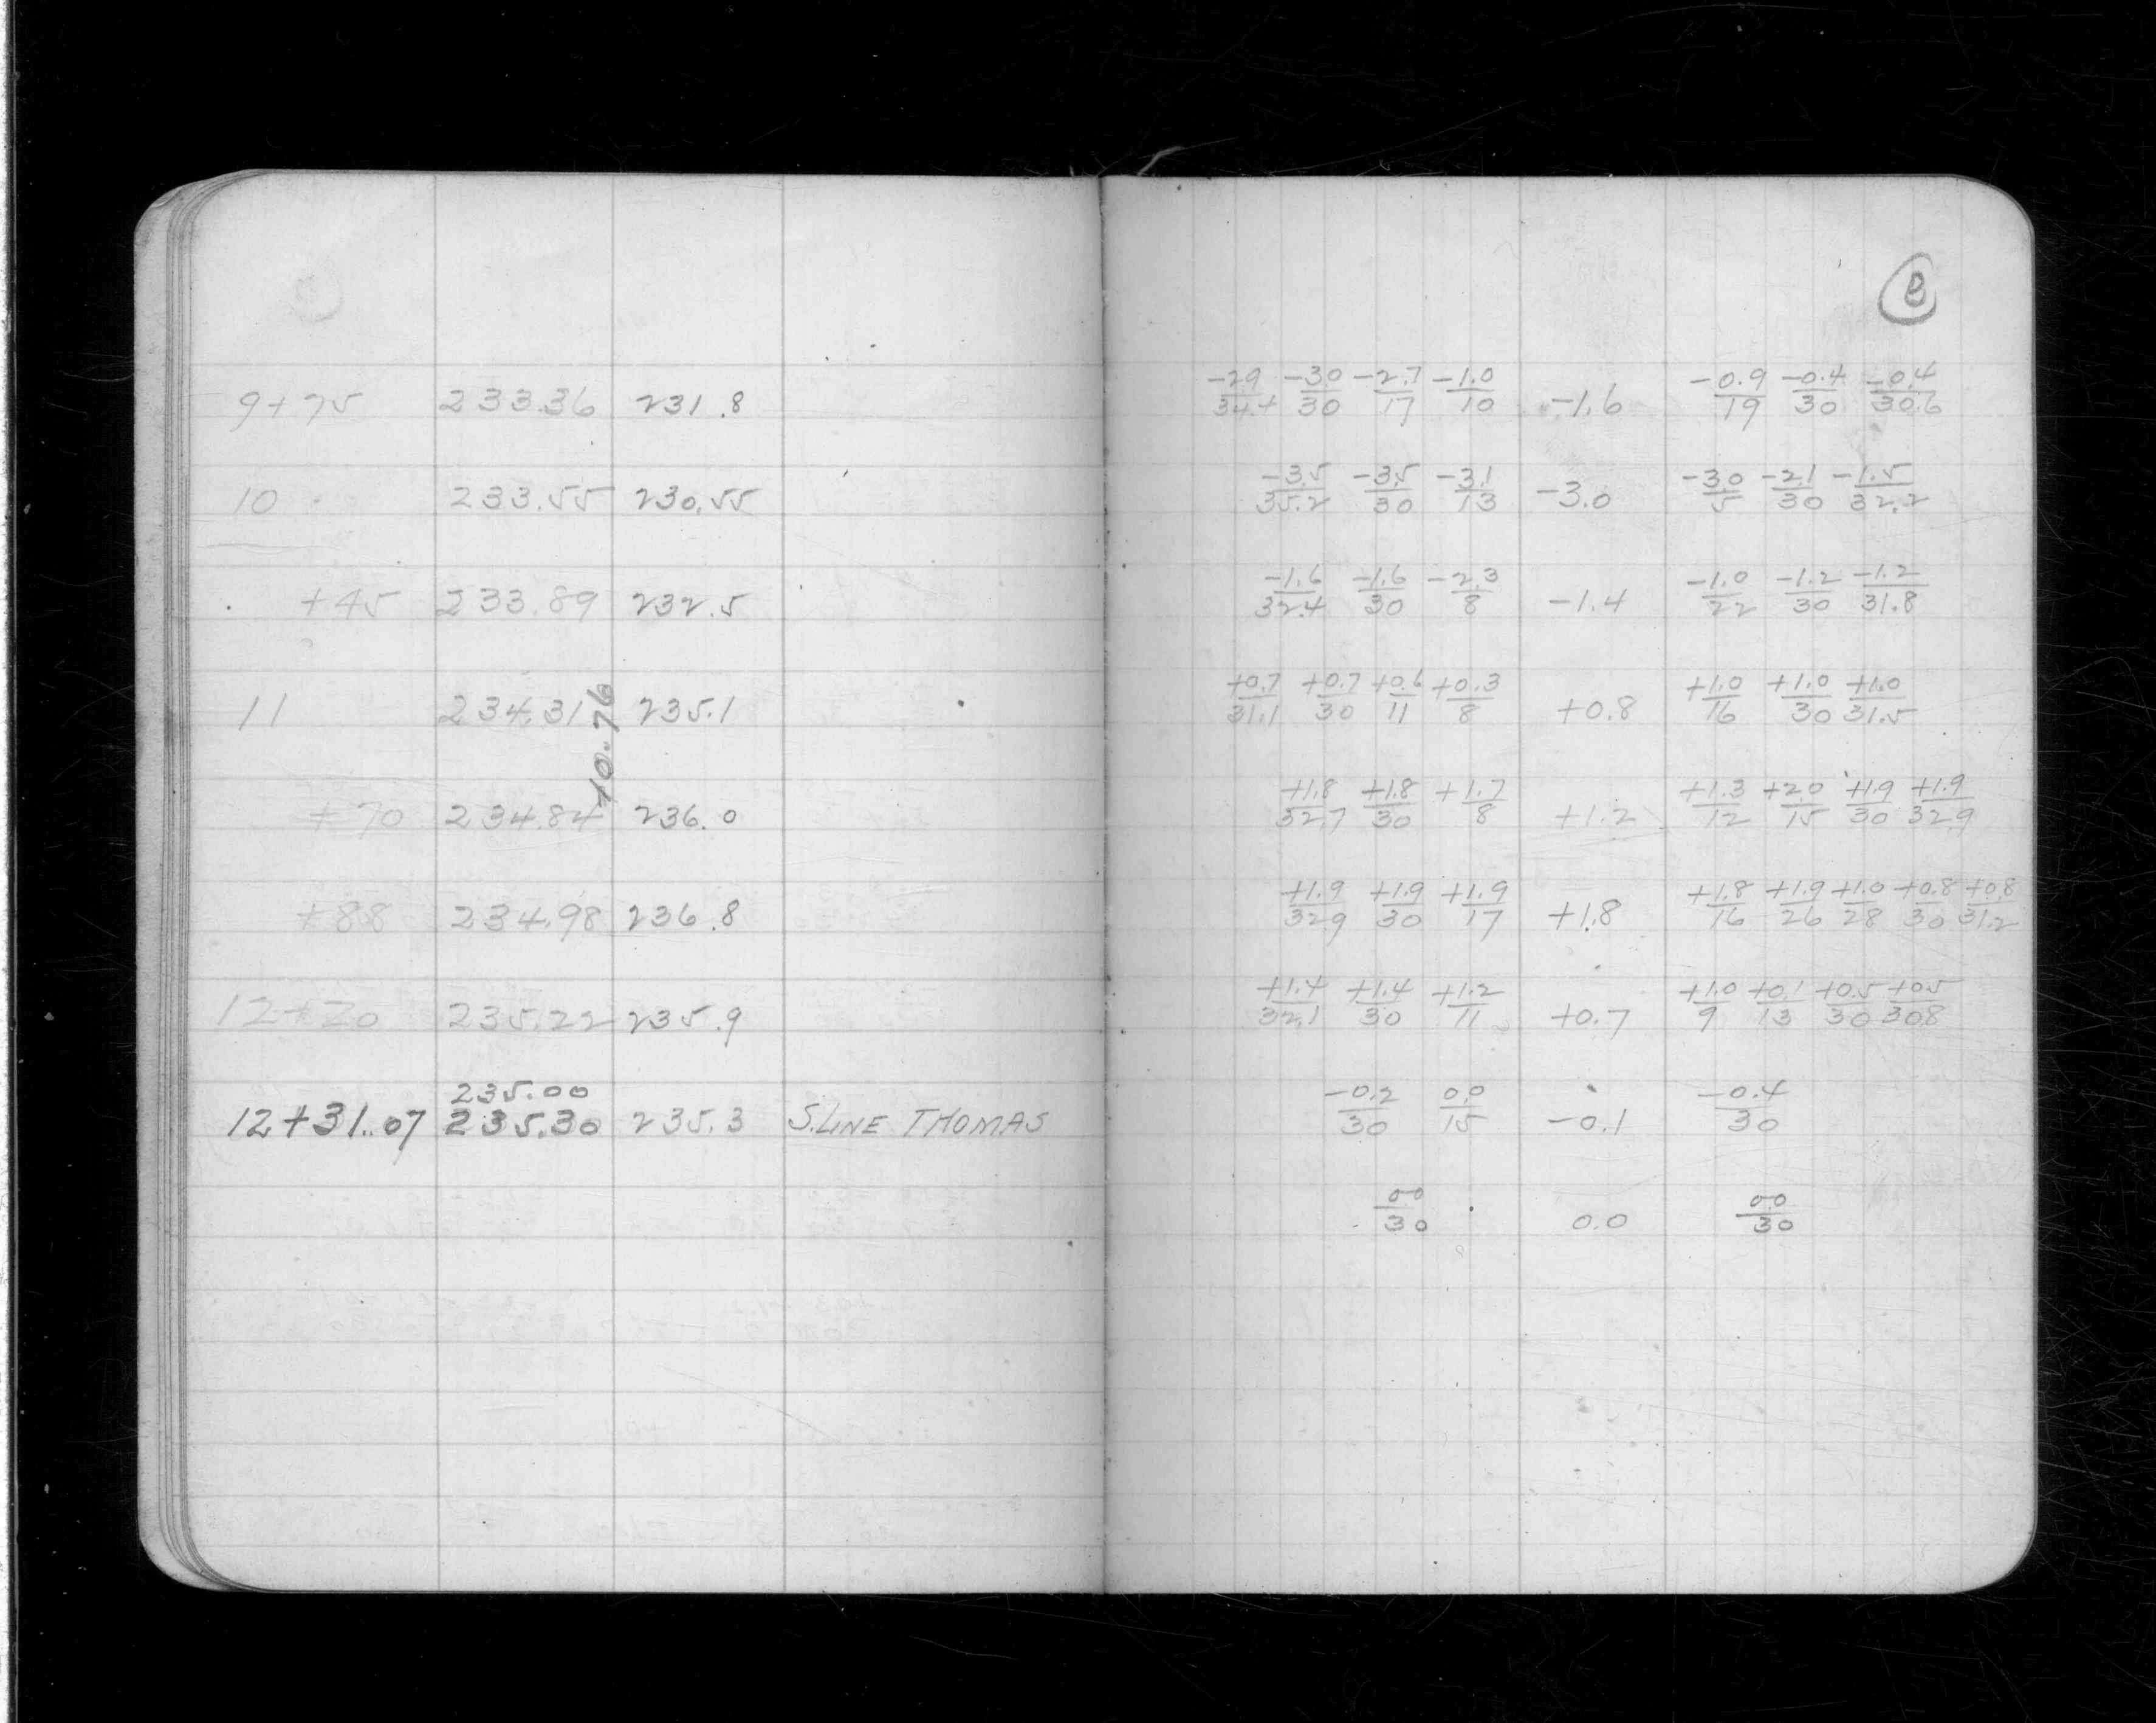 8
9+75 233.36 231.8 -2.9/34.4 -3.0/30 -2.7/17 -1.0/10 -1.6 -0.9/19 -0.4/30 -0.4/30.6
10 233.55 230.55 -3.5/35.2 -3.5/30 -3.1/13 -3.0 -3.0/5 -2.1/30 -1.5/32.2
+45 233.89 232.5 -1.6/32.4 -1.6/30 -2.3/8 -1.4 -1.0/22 -1.2/30 -1.2/31.8
11 234.31 235.1 +0.7/31.1 +0.7/30 +0.6/11 +0.3/8 +0.8 +1.0/16 +1.0/30 +1.0/31.5
+0.76
+70 234.84 236.0 +1.8/32.7 +1.8/30 +1.7/8 +1.2 +1.3/12 +2.0/15 +1.9/30 +1.9/32.9
+88 234.98 236.8 +1.9/32.9 +1.9/30 +1.9/17 +1.8 +1.8/16 +1.9/26 +1.0/28 +0.8/30 +0.8/31.2
12+20 235.22 235.9 +1.4/32.1 +1.4/30 +1.2/11 +0.7 +1.0/9 +0.1/13 +0.5/30 +0.5/30.8
235.00
12+31.07 235.30 235.3 S.LINE THOMAS -0.2/30 0.0/15 -0.1 -0.4/30
0.0/30 0.0 0.0/30